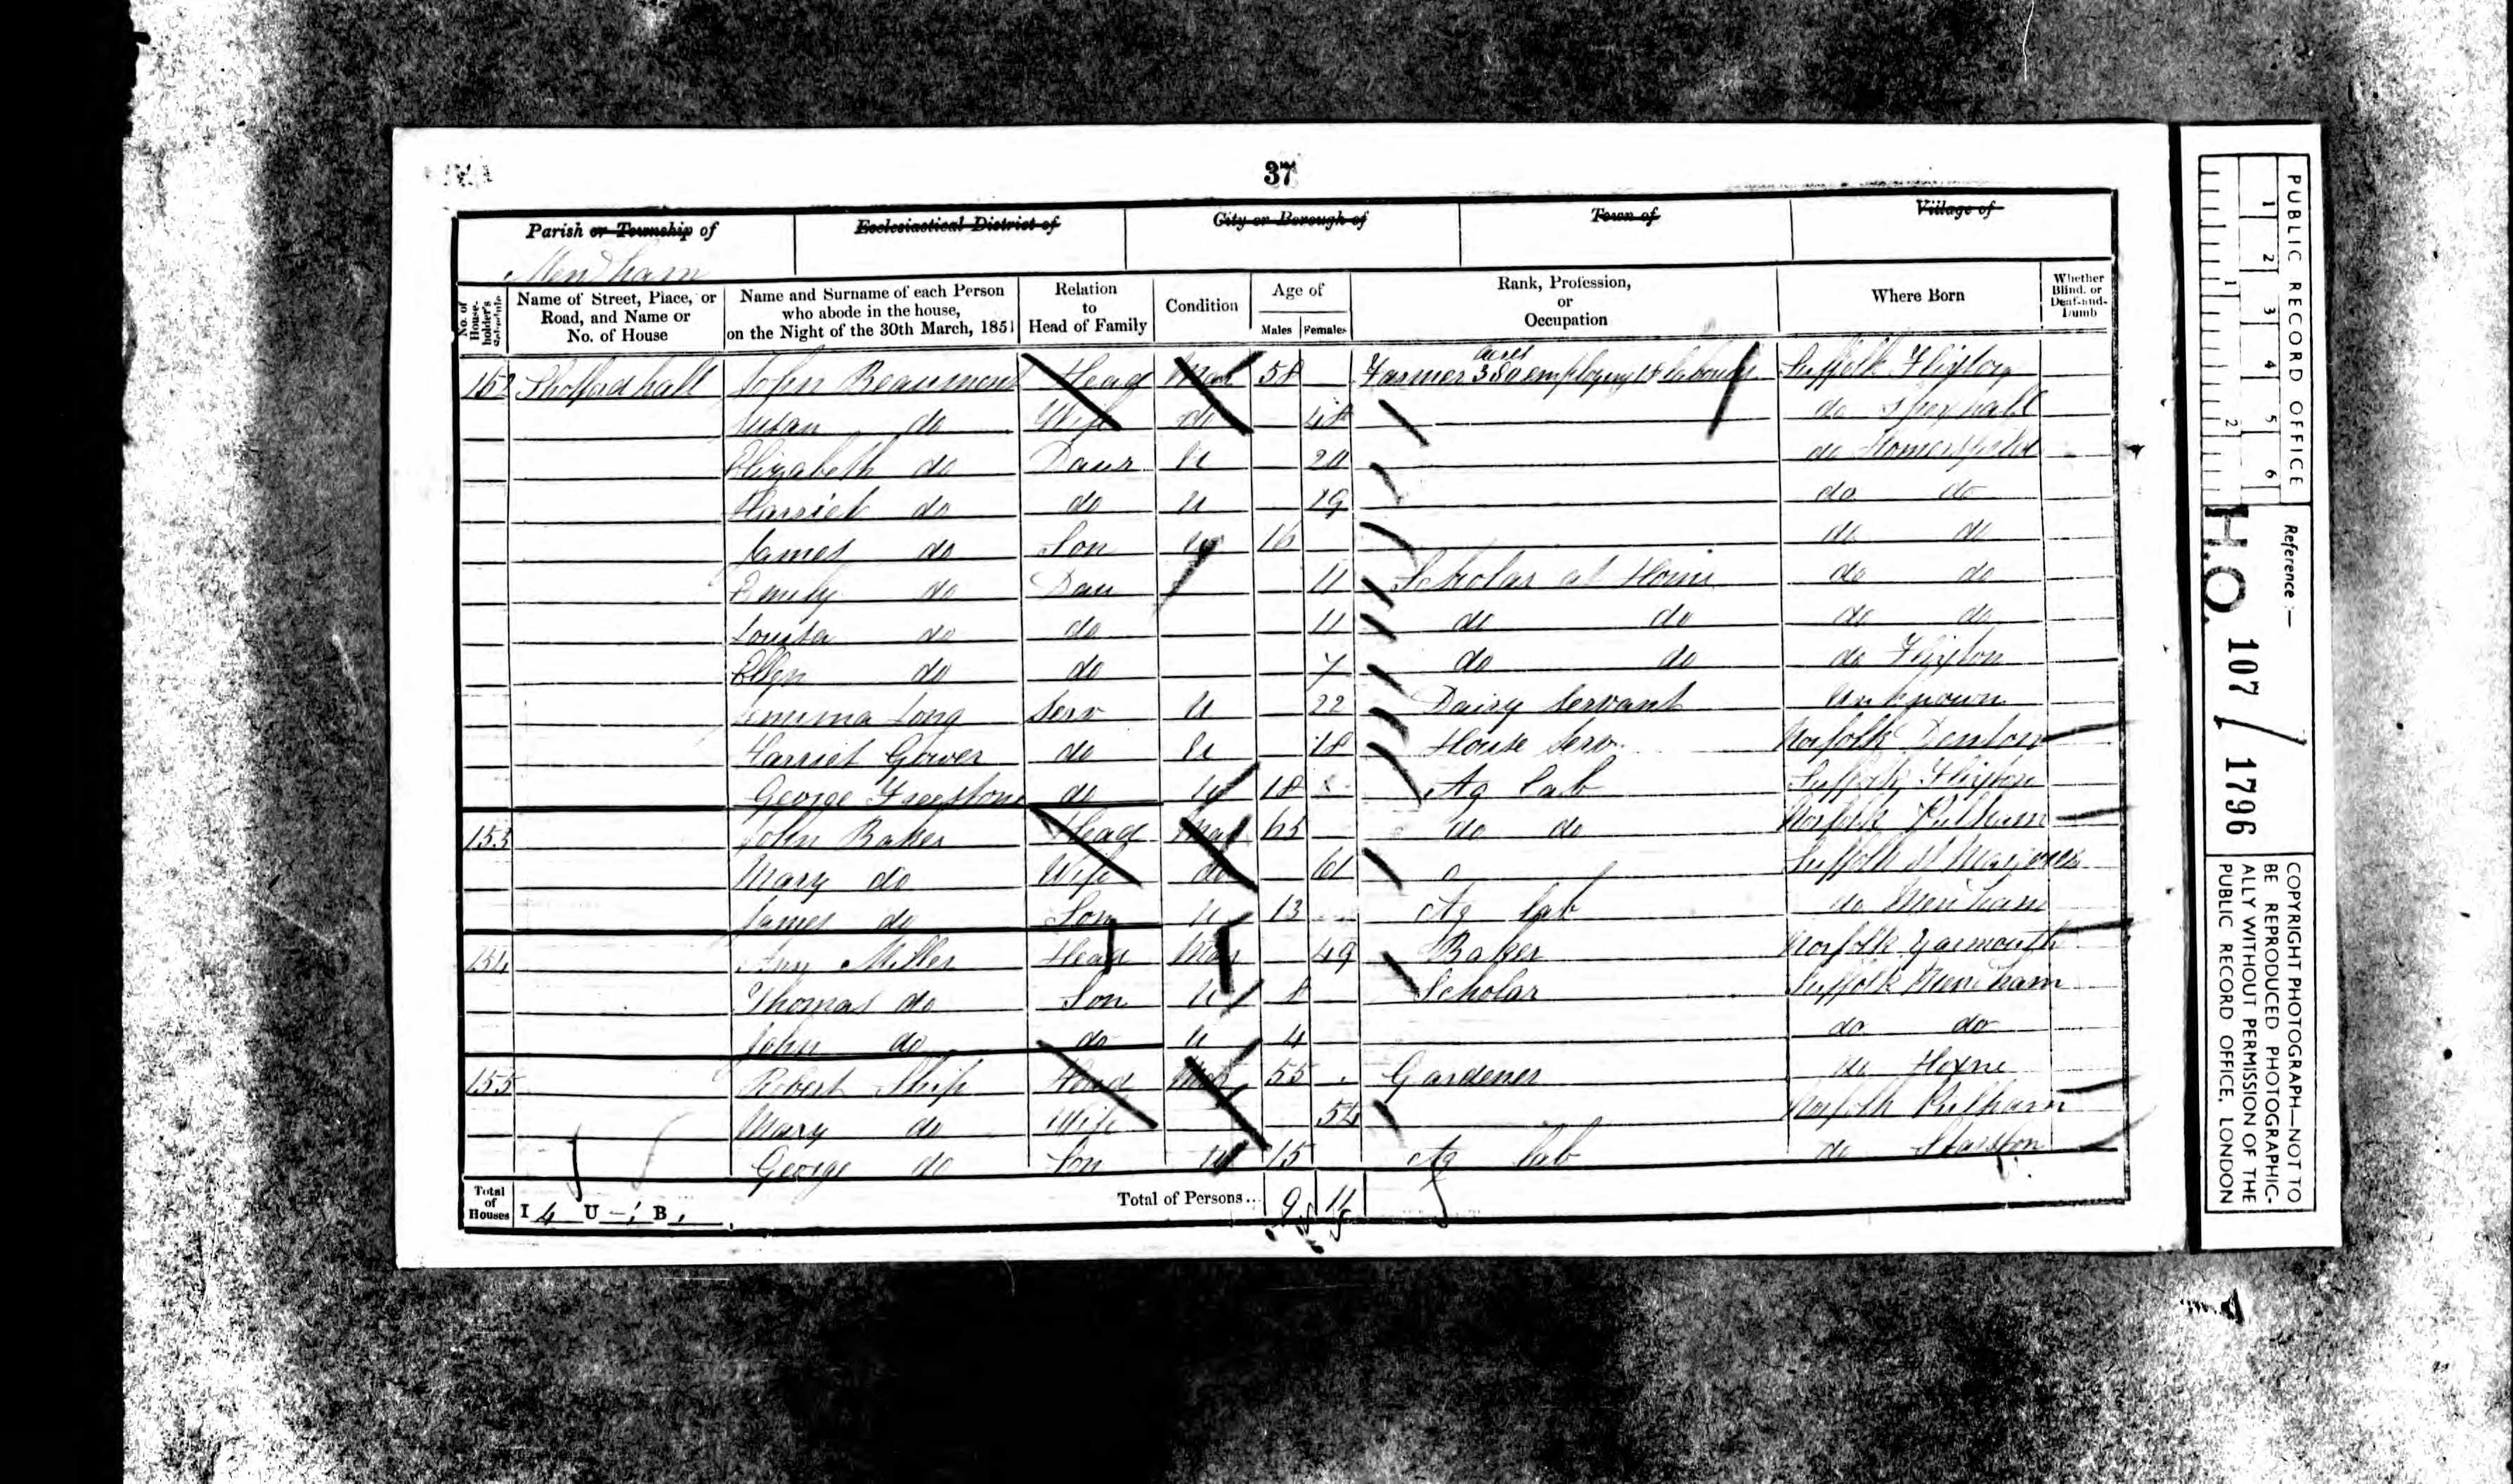 37
Parish or Township of
Ecclesiastical District of
City or Borough of
Town of
Village of
Mendham
No. of House-holder's Schedule
Name of Street, Place, or Road, and Name or No. of House
Name and Surname of each Person who abode in the house, on the Night of the 30th March, 1851
Relation to Head of Family
Condition
Age of
Males Females
Rank, Profession, or Occupation
Where Born
Whether Blind, or Deaf-and-Dumb
152 Shotford hall John Beaumont Head Mar 58 Farmer 380 acres employing 18 labourers Suffolk Flixton
Susan do Wife do 48 do
Elizabeth do Daur U 20 do Homersfield
Harriet do do U 19 do do
James do Son U 16 do do
Emily do Dau 11 Scholar at Home do do
Louisa do do 11 do do do do
Ellen do do 7 do do do Flixton
Long Serv U 22 Dairy Servant Unknown
Harriet Gower do U 18 House Serv Norfolk Denton
George Freestone do U 18 Ag lab Suffolk Flixton
153 John Baker Head Mar 65 do do Norfolk Pulham
Mary do Wife do 61 Suffolk St
James do Son U 13 Ag lab do Mendham
154 Miller Head Mar 49 Baker Norfolk Yarmouth
Thomas do Son U 8 Scholar Suffolk Mendham
John do do U 4 do do
155 Robert Head Mar 55 Gardener do Hoxne
Mary do Wife 54 Norfolk Pulham
George do Son U 15 Ag lab do Starston
Total of Houses I 4 U - B
Total of Persons .. 9 11
PUBLIC RECORD OFFICE
1 2 3 4 5 6
1 2
Reference :—
H.O. 107 / 1796
COPYRIGHT PHOTOGRAPH—NOT TO
BE REPRODUCED PHOTOGRAPHIC-
ALLY WITHOUT PERMISSION OF THE
PUBLIC RECORD OFFICE, LONDON